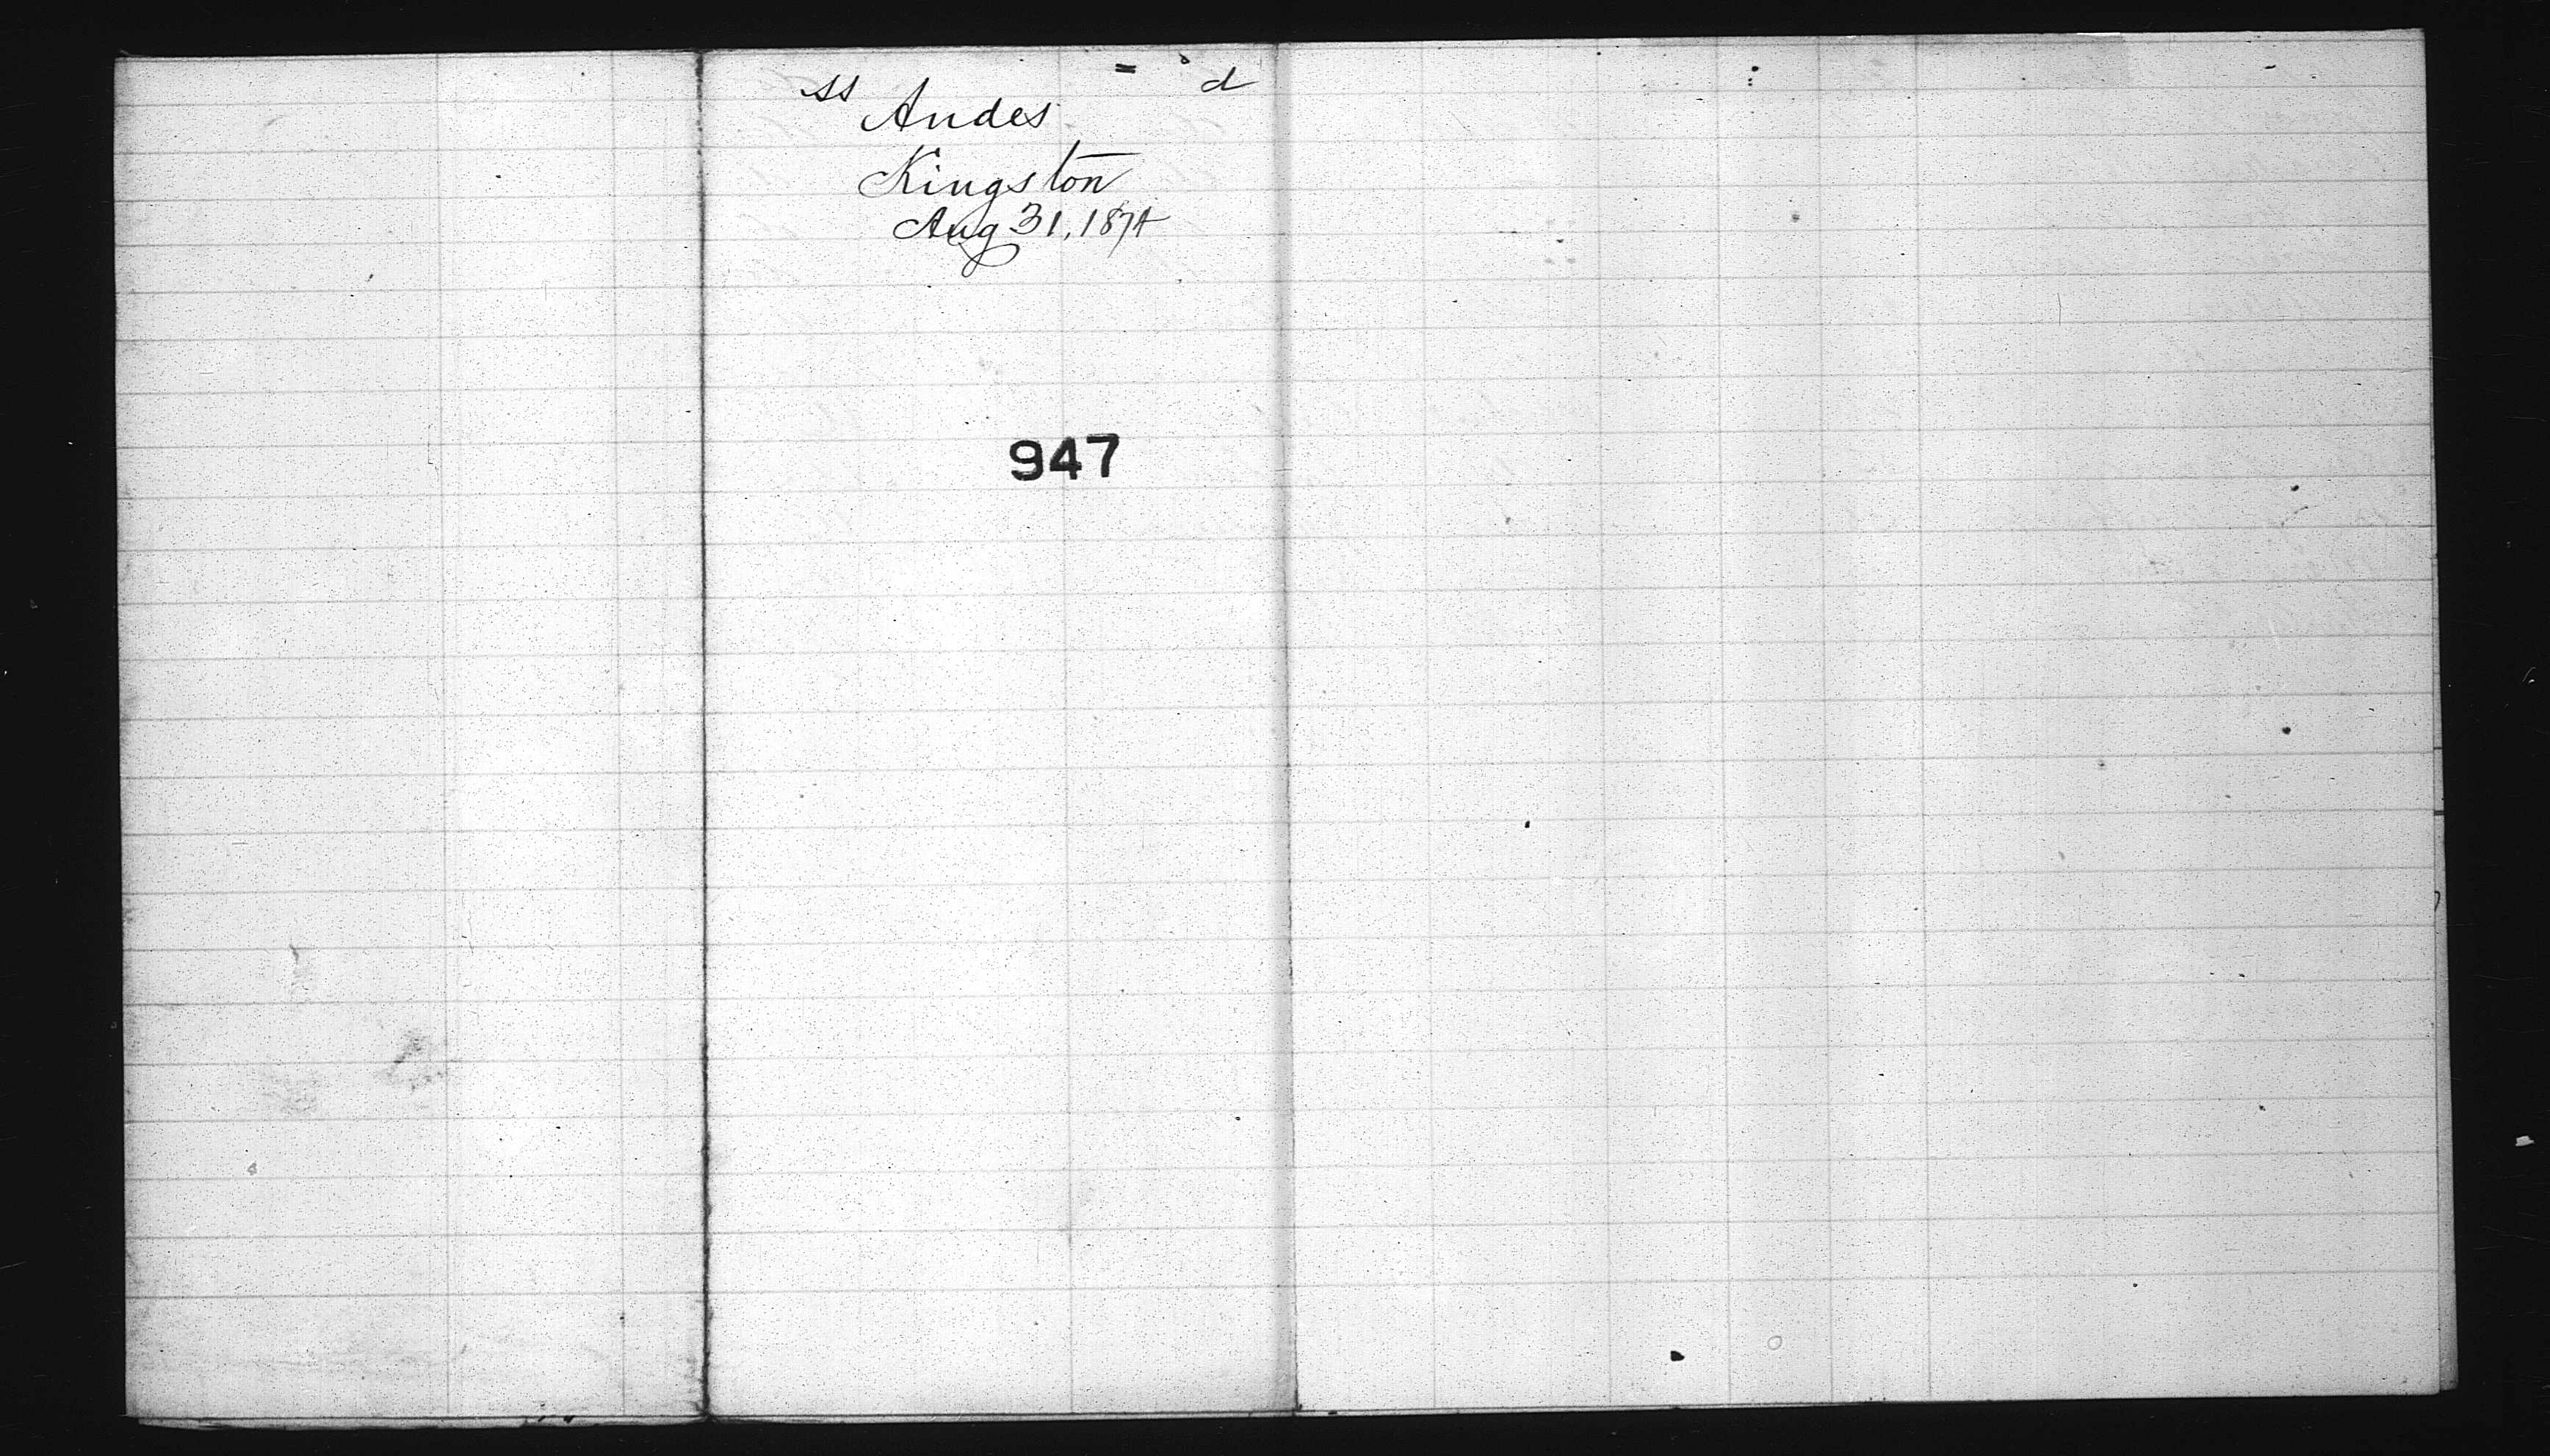 SS d
Andes
Kingston
Aug 31, 1874
947